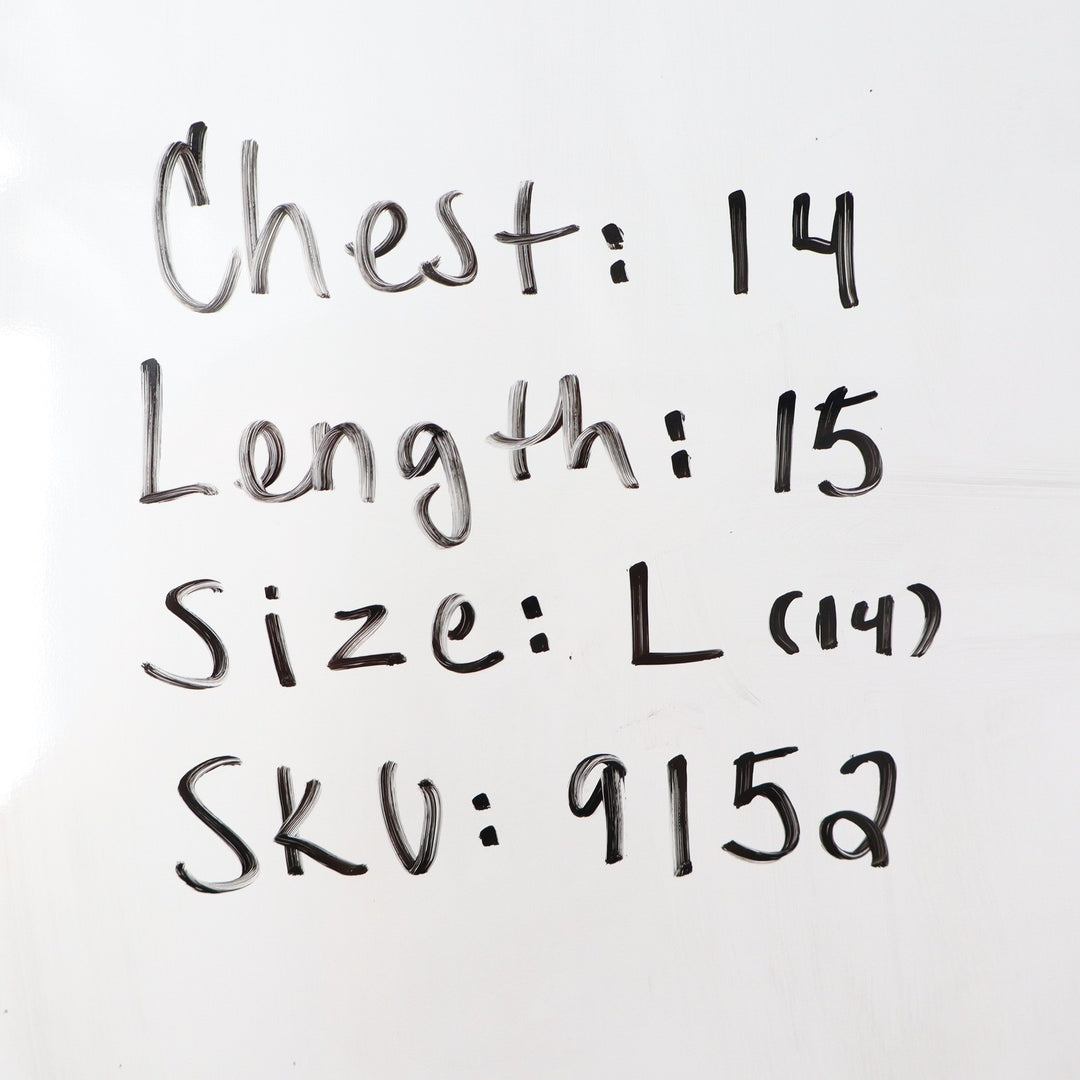 Chest: 14
Length: 15
Size: L (14)
SKU: 9152